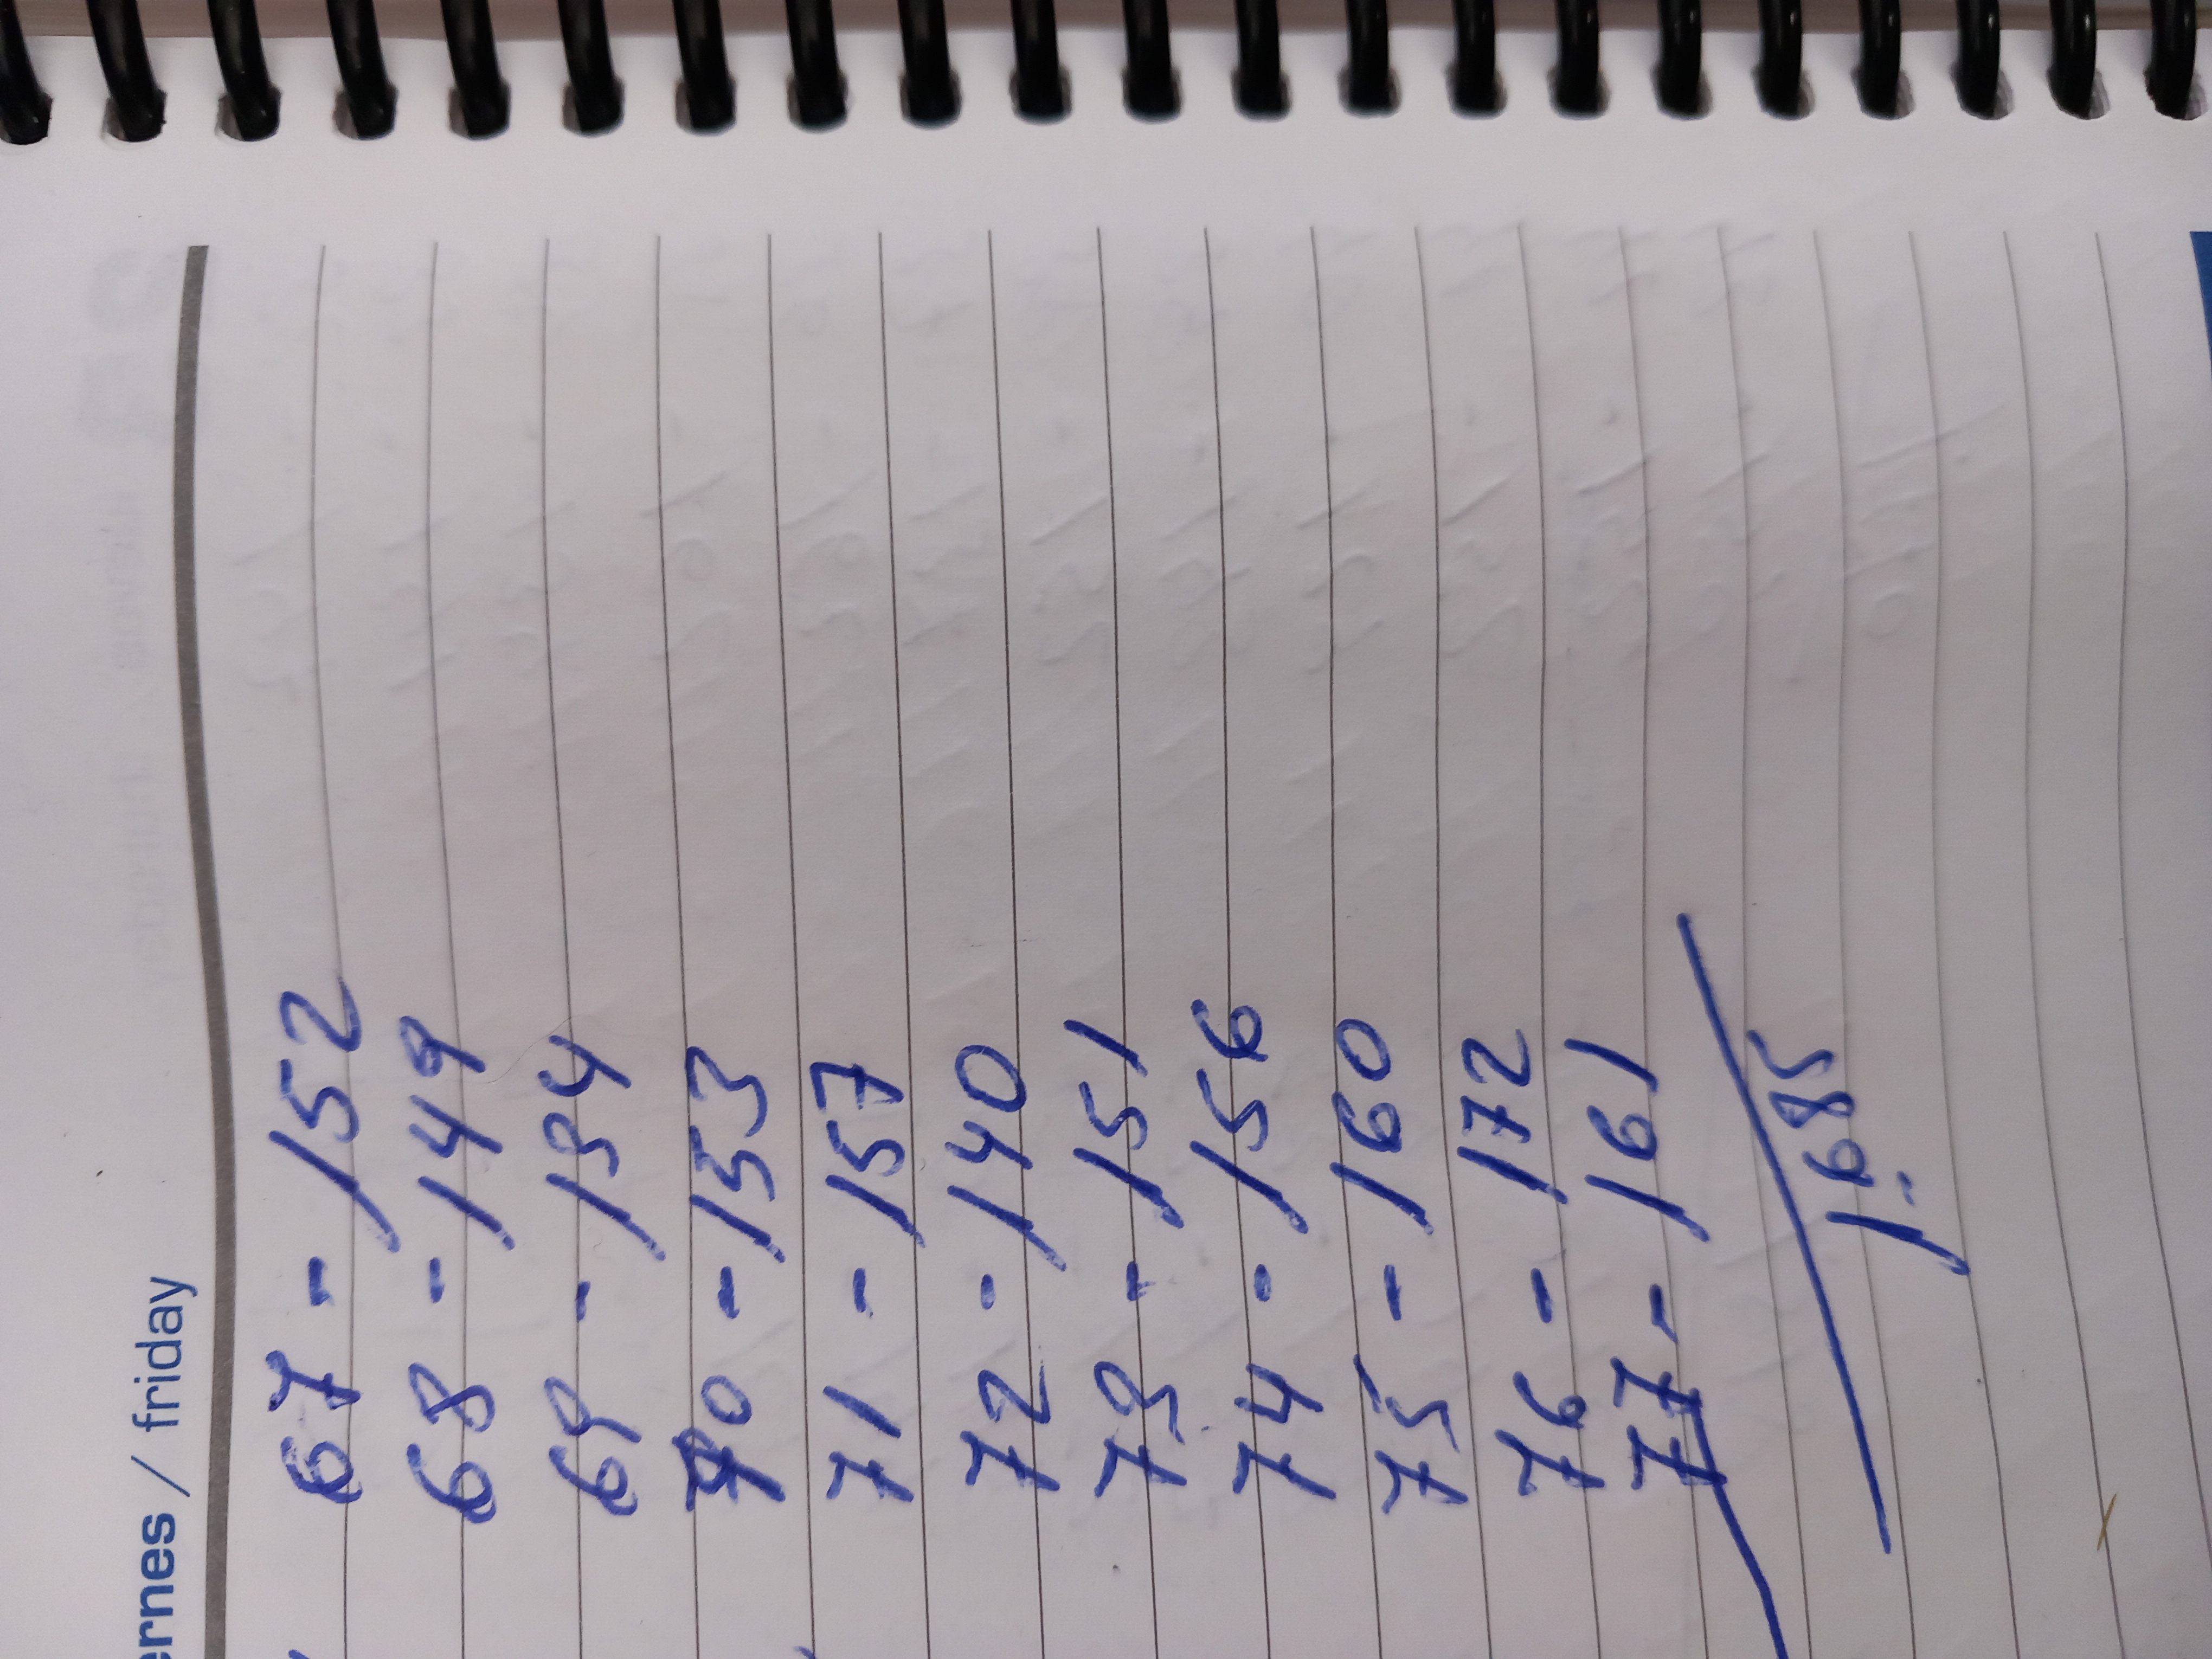 ernes / friday
67 - 152
68 - 149
69 - 134
70 - 153
71 - 157
72 - 140
73 - 151
74 - 156
75 - 160
76 - 172
77 - 161
1.685